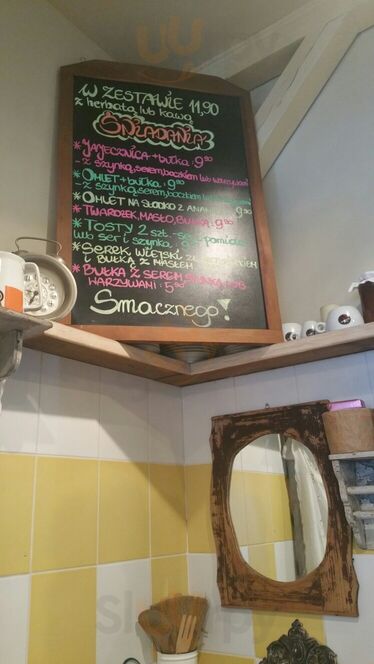 W ZESTAWIE 11,90
z herbatą lub kawą
ŚNIADANIA:
* JAJECZNICA + bułka: 9 90
- z szynką, serem, boczkiem lub warzywami
* OMLET + bułka: 9 90
- z szynką, serem, boczkiem lub
* OMLET NA SŁODKO Z 9 90
* TWAROŻEK, MASŁO, BUŁKA: 9 90
* TOSTY 2 szt. - ser i
lub ser i szynka
* SEREK WIEJSKI ZE
I BUŁKĄ Z MASŁEM
* BUŁKA Z SEREM, SZYNKĄ LUB
WARZYWAMI: 5 90
Smacznego!